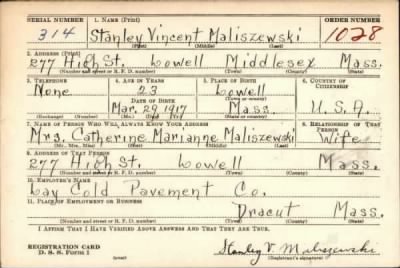 SERIAL NUMBER 1. NAME (Print) ORDER NUMBER
314 Stanley Vincent Maliszewski 1028
(First) (Middle) (Last)
2. ADDRESS (Print)
277 High St. Lowell Middlesex Mass.
(Number and street or R. F. D. number) (Town) (County) (State)
3. TELEPHONE 4. AGE IN YEARS 5. PLACE OF BIRTH 6. COUNTRY OF CITIZENSHIP
None 23 Lowell
DATE OF BIRTH (Town or county)
Mar. 29 1917 Mass. U.S.A.
(Exchange) (Number) (Mo.) (Day) (Yr.) (State or country)
7. NAME OF PERSON WHO WILL ALWAYS KNOW YOUR ADDRESS 8. RELATIONSHIP OF THAT PERSON
Mrs. Catherine Marianne Maliszewski Wife
(Mr., Mrs., Miss) (First) (Middle) (Last)
9. ADDRESS OF THAT PERSON
277 High St. Lowell Mass.
(Number and street or R. F. D. number) (Town) (County) (State)
10. EMPLOYER'S NAME
Lay Cold Pavement Co.
11. PLACE OF EMPLOYMENT OR BUSINESS
Dracut Mass.
(Number and street or R. F. D. number) (Town) (County) (State)
I AFFIRM THAT I HAVE VERIFIED ABOVE ANSWERS AND THAT THEY ARE TRUE.
REGISTRATION CARD
D. S. S. Form 1 Stanley V. Maliszewski
(over) (Registrant's signature)